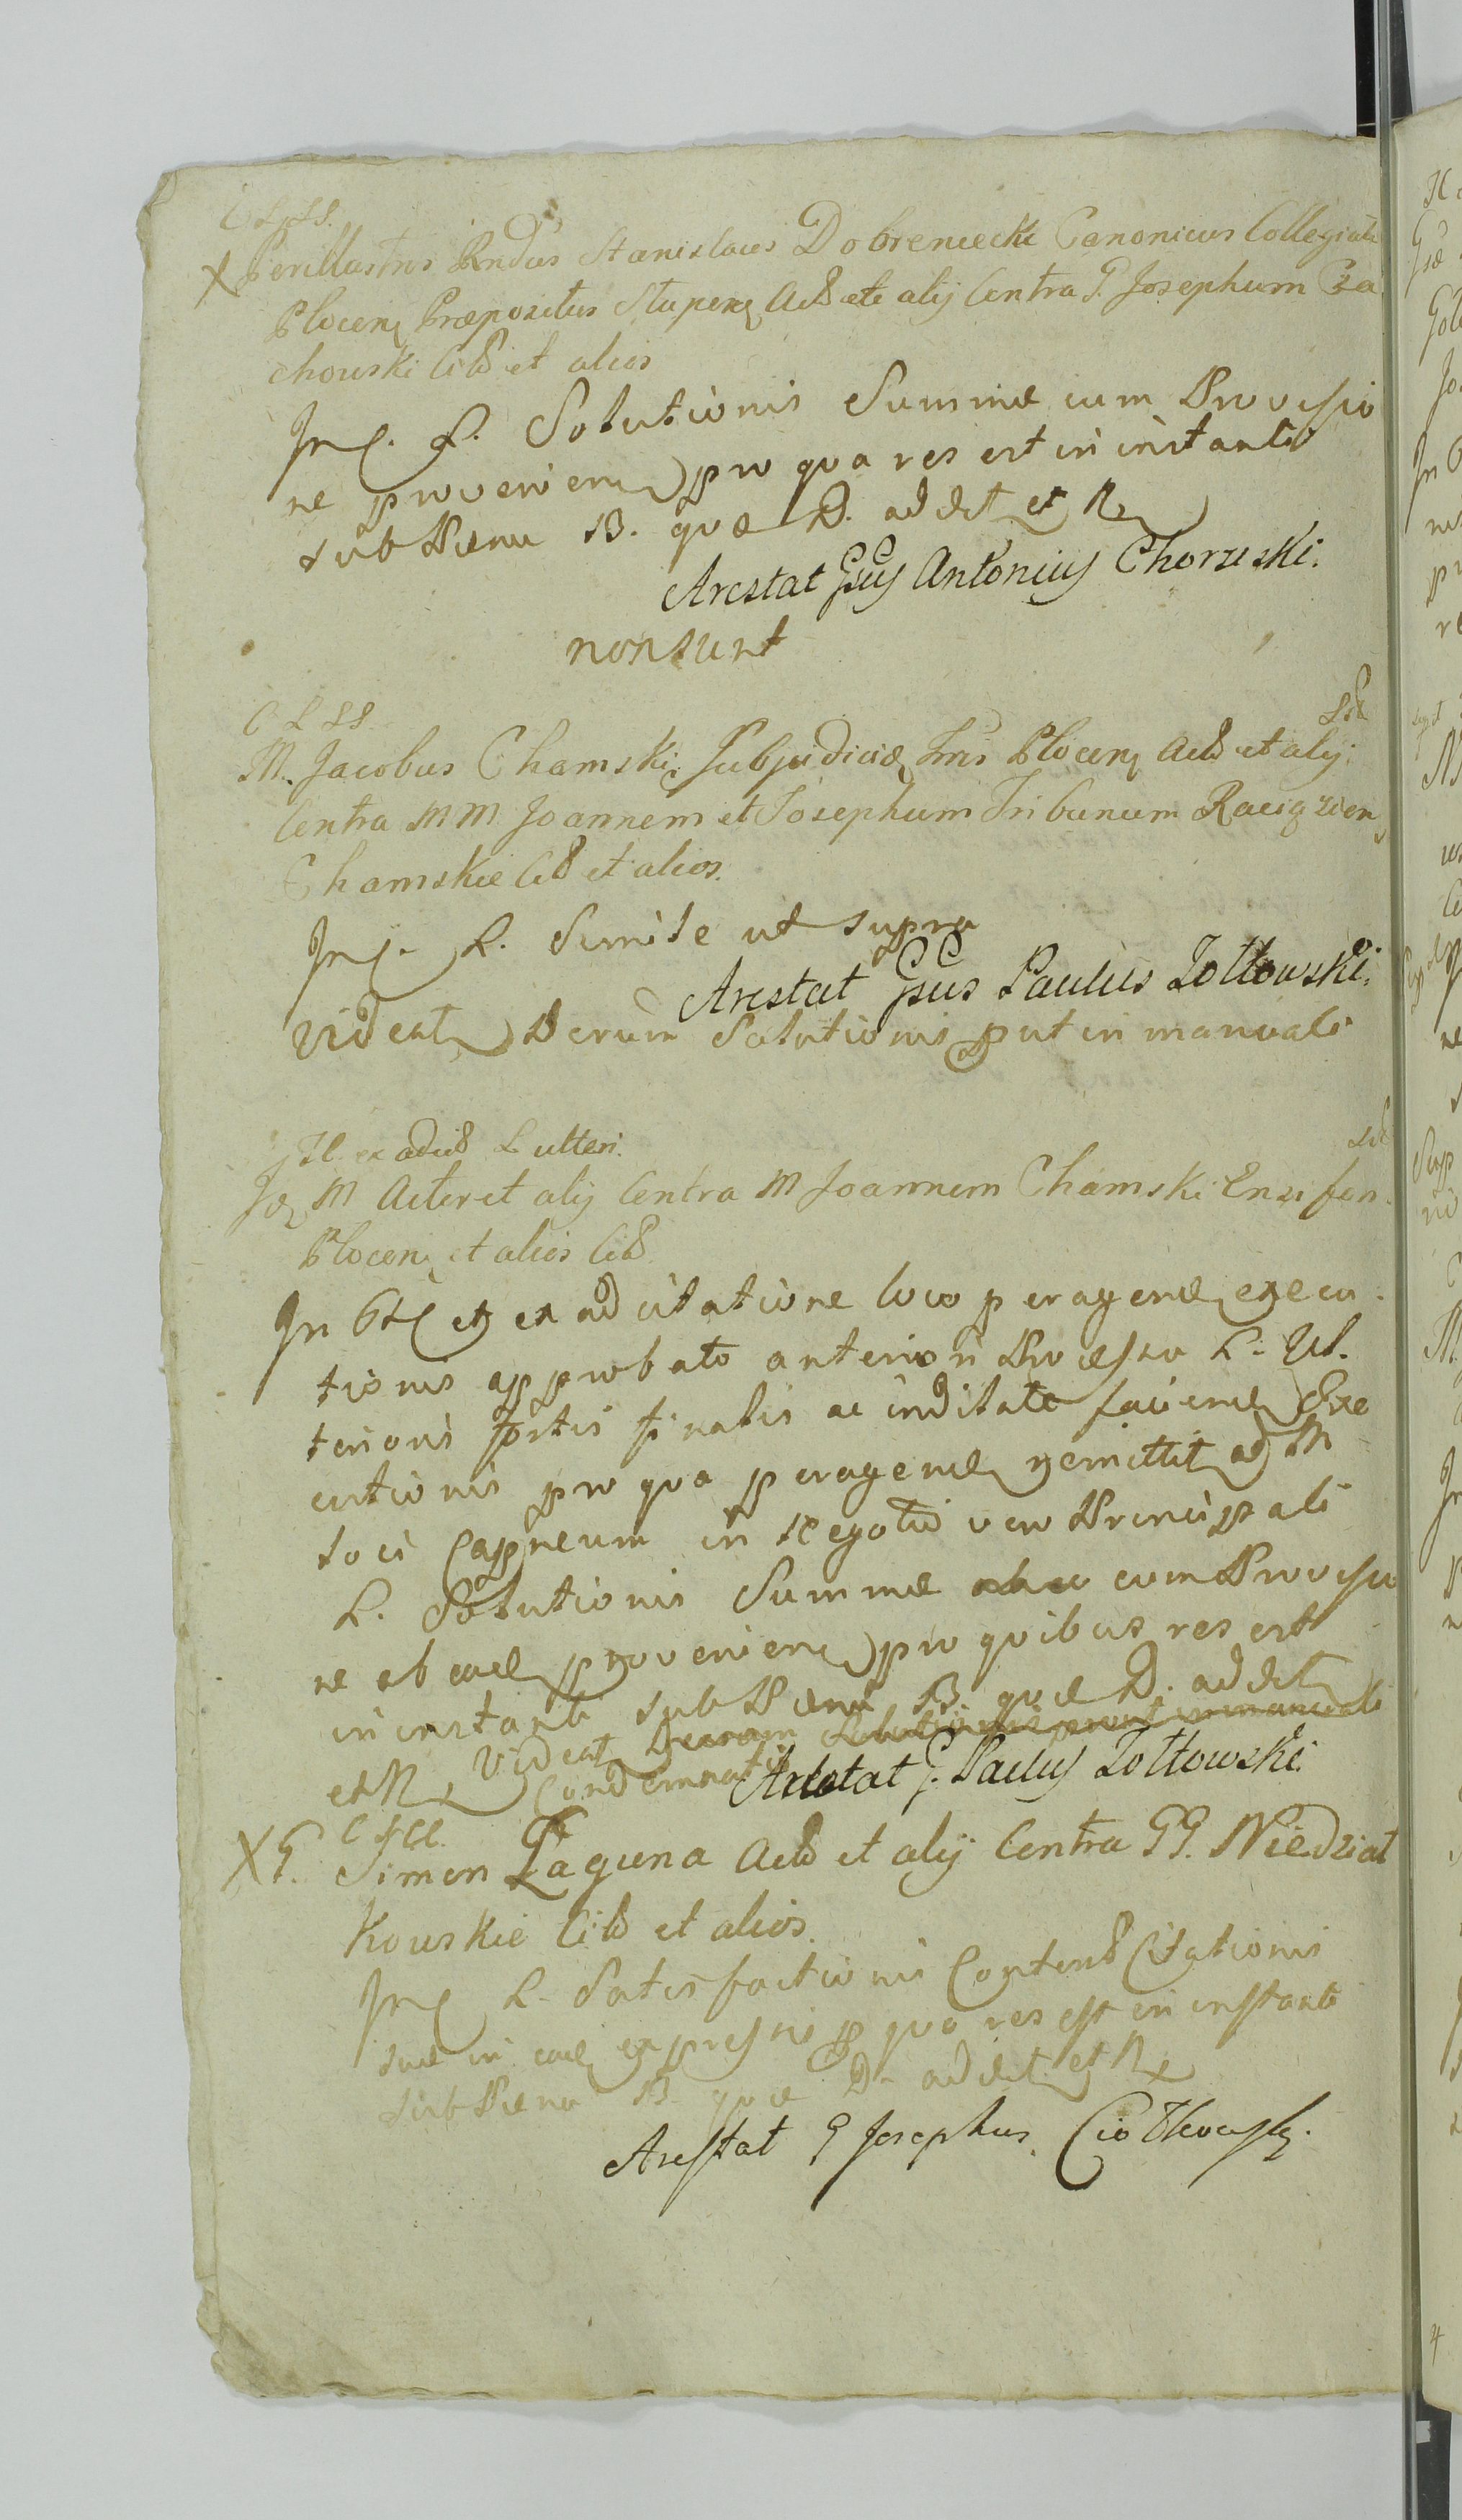 C L SS.
X Perillustris Rndus Stanislaus Dobreniecki Canonicus Collegiatæ
Plocen Præpositus Stupen Actð et alij Contra G. Josephum Cza
chowski Citð et alios
In C. L. Solutionis Summæ cum Provisio
ne provenien pro qua res est in instanti
sub Pæna B. quæ D. addet et R
Arestat Gsus Antonius Chorzeski.
non sunt
C L SS
M. Jacobus Chamski Subjudicis Trris Plocen Actð et alij
Contra MM. Joannem et Josephum Tribunum Raciązien
Chamskie Citð et alios.
In C. L. Simile ut supra
Arestat Gsus Paulus Zołtowski.
Videat Decrum Solutionis put in manuali
Il. ex adcið L ulteri.
M Actor et alij Contra M Joannem Chamski Ensifen
Plocen et alios Citð
In et ex adcitatione loco peragenæ execu
tionis approbato anteriori Processu L. Ul
terioris fortis finalis ac inditate faciend Exe
cutionis pro qua peragend remittit ad M
loci Capneum in Negotio vero Principali
L. Solutionis Summæ cum Provisio
ne ab eade provenien pro quibus res est
in instanti sub Pæna B. quæ D. addet
et R Videat Decrum Solutionis prout in manuali
Condemnatio Arestat G. Paulus Zołtowski.
X G. Simon Łaguna Actð et alij Contra GG. Niedział
kowskie Citð et alios.
In C L. Satisfactionis Content Citationis
suæ in eade expressis p quo res est in instanti
sub Pæna B. quæ D. addet et R
Arestat G Josephus